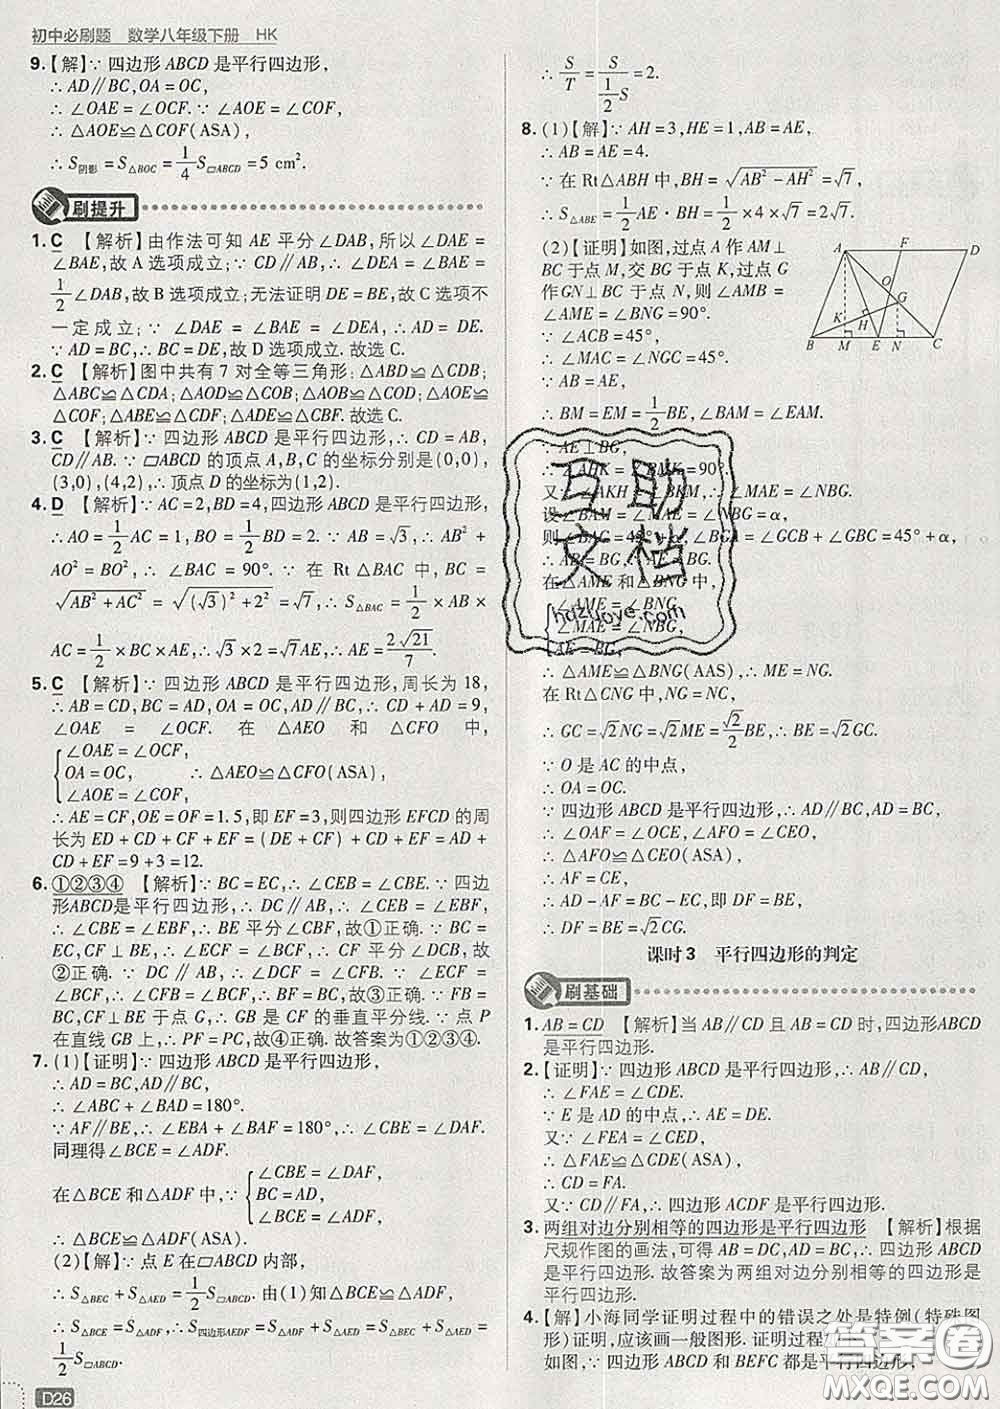 初中必刷题 数学八年级下册 HK
9.【解】∵ 四边形 ABCD 是平行四边形,
∴ AD∥BC,OA=OC,
∴ ∠OAE=∠OCF. ∵ ∠AOE=∠COF,
∴ △AOE≌△COF(ASA),
∴ S阴影=S△BOC=1/4 S▱ABCD=5 cm².
刷提升
1. C 【解析】由作法可知 AE 平分∠DAB,所以∠DAE=
∠BAE,故 A 选项成立;∵ CD∥AB,∴ ∠DEA=∠BAE=
1/2∠DAB,故 B 选项成立;无法证明 DE=BE,故 C 选项不
一定成立;∵ ∠DAE=∠BAE=∠DEA,∴ AD=DE.
∵ AD=BC,∴ BC=DE,故 D 选项成立. 故选 C.
2. C 【解析】图中共有 7 对全等三角形:△ABD≌△CDB;
△ABC≌△CDA;△AOD≌△COB;△AOB≌△COD;△AOE≌
△COF;△ABE≌△CDF;△ADE≌△CBF. 故选 C.
3. C 【解析】∵ 四边形 ABCD 是平行四边形,∴ CD=AB,
CD∥AB. ∵ ▱ABCD 的顶点 A,B,C 的坐标分别是(0,0),
(3,0),(4,2),∴ 顶点 D 的坐标为(1,2).
4. D 【解析】∵ AC=2,BD=4,四边形 ABCD 是平行四边形,
∴ AO=1/2 AC=1,BO=1/2 BD=2. ∵ AB=√3,∴ AB²+
AO²=BO²,∴ ∠BAC=90°. ∵ 在 Rt△BAC 中,BC=
√(AB²+AC²)=√((√3)²+2²)=√7,∴ S△BAC=1/2×AB×
AC=1/2×BC×AE,∴ √3×2=√7AE,∴ AE=2√21/7.
5. C 【解析】∵ 四边形 ABCD 是平行四边形,周长为 18,
∴ AB=CD,BC=AD,OA=OC,AD∥BC,∴ CD+AD=9,
∠OAE=∠OCF. 在△AEO 和△CFO 中,
{∠OAE=∠OCF,
OA=OC, ∴ △AEO≌△CFO(ASA),
∠AOE=∠COF,
∴ AE=CF,OE=OF=1.5,即 EF=3,则四边形 EFCD 的周
长为 ED+CD+CF+EF=(DE+CF)+CD+EF=AD+
CD+EF=9+3=12.
6. ①②③④ 【解析】∵ BC=EC,∴ ∠CEB=∠CBE. ∵ 四边
形ABCD是平行四边形,∴ DC∥AB,∴ ∠CEB=∠EBF,
∴ ∠CBE=∠EBF,∴ BE 平分∠CBF,故①正确. ∵ BC=
EC,CF⊥BE,∴ ∠ECF=∠BCF,∴ CF 平分∠DCB,故
②正确. ∵ DC∥AB,∴ ∠DCF=∠CFB. ∵ ∠ECF=
∠BCF,∴ ∠CFB=∠BCF,∴ BF=BC,故③正确. ∵ FB=
BC,CF⊥BE 于点 G,∴ GB 是 CF 的垂直平分线. ∵ 点 P
在直线 GB 上,∴ PF=PC,故④正确. 故答案为①②③④.
7. (1)【证明】∵ 四边形 ABCD 是平行四边形,
∴ AD=BC,AD∥BC,
∴ ∠ABC+∠BAD=180°.
∵ AF∥BE,∴ ∠EBA+∠BAF=180°,∴ ∠CBE=∠DAF.
同理得∠BCE=∠ADF.
在△BCE 和△ADF 中,∵ {∠CBE=∠DAF,
BC=AD,
∠BCE=∠ADF,
∴ △BCE≌△ADF(ASA).
(2)【解】∵ 点 E 在▱ABCD 内部,
∴ S△BEC+S△AED=1/2 S▱ABCD. 由(1)知△BCE≌△ADF,
∴ S△BEC=S△ADF,∴ S四边形AEDF=S△ADF+S△AED=S△BEC+S△AED=
1/2 S▱ABCD.
D26
∴ S/T=S/(1/2 S)=2.
8. (1)【解】∵ AH=3,HE=1,AB=AE,
∴ AB=AE=4.
∵ 在 Rt△ABH 中,BH=√(AB²-AH²)=√7,
∴ S△ABE=1/2 AE·BH=1/2×4×√7=2√7.
(2)【证明】如图,过点 A 作 AM⊥
BC 于点 M,交 BG 于点 K,过点 G
作GN⊥BC 于点 N,则∠AMB=
∠AME=∠BNG=90°.
∵ ∠ACB=45°,
∴ ∠MAC=∠NGC=45°.
∵ AB=AE,
A F D O G K H B M E N C
∴ BM=EM=1/2 BE,∠BAM=∠EAM.
∵ AE⊥BG,
∴ ∠AHK=∠BMK=90°.
又∵ ∠AKH=∠BKM,∴ ∠MAE=∠NBG.
设∠BAM=∠MAE=∠NBG=α,
则∠BAG=45°+α,∠BGA=∠GCB+∠GBC=45°+α,
∴ AB=BG,∴ AE=BG.
在△AME 和△BNG 中,
{∠AME=∠BNG,
∠MAE=∠NBG,
AE=BG,
∴ △AME≌△BNG(AAS),∴ ME=NG.
在 Rt△CNG 中,NG=NC,
∴ GC=√2NG=√2ME=√2/2 BE,∴ BE=√2GC.
∵ O 是 AC 的中点,
∴ OA=OC.
∵ 四边形 ABCD 是平行四边形,∴ AD∥BC,AD=BC,
∴ ∠OAF=∠OCE,∠AFO=∠CEO,
∴ △AFO≌△CEO(AAS),
∴ AF=CE,
∴ AD-AF=BC-EC,即 DF=BE,
∴ DF=BE=√2CG.
课时 3 平行四边形的判定
刷基础
1. AB=CD 【解析】当 AB∥CD 且 AB=CD 时,四边形ABCD
是平行四边形.
2.【证明】∵ 四边形 ABCD 是平行四边形,∴ AB∥CD,
∴ ∠FAE=∠CDE.
∵ E 是 AD 的中点,∴ AE=DE.
又∵ ∠FEA=∠CED,
∴ △FAE≌△CDE(ASA),
∴ CD=FA.
又∵ CD∥FA,∴ 四边形 ACDF 是平行四边形.
3. 两组对边分别相等的四边形是平行四边形 【解析】根据
尺规作图的画法,可得 AB=DC,AD=BC,∴ 四边形ABCD
是平行四边形. 故答案为两组对边分别相等的四边形是
平行四边形.
4.【解】小海同学证明过程中的错误之处是特例(特殊图
形)证明,应该画一般图形. 证明过程
如图,∵ 四边形 ABCD 和 BEFC 都是平行四边形,
互助
文档
hdzuoye.com
答案圈
MXQE.COM